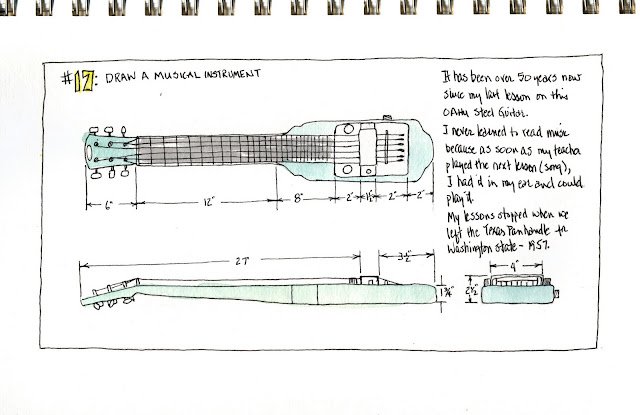 #17: DRAW A MUSICAL INSTRUMENT
It has been over 50 years now
since my last lesson on this
OAHU Steel Guitar.
I never learned to read music
because as soon as my teacher
played the next lesson (song),
I had'd in my ear and could
play'd.
My lessons stopped when we
left the Texas Panhandle for
Washington state - 1957.
6"
12"
8"
2"
1½"
2"
2"
27"
3½"
1¾"
2½"
4"